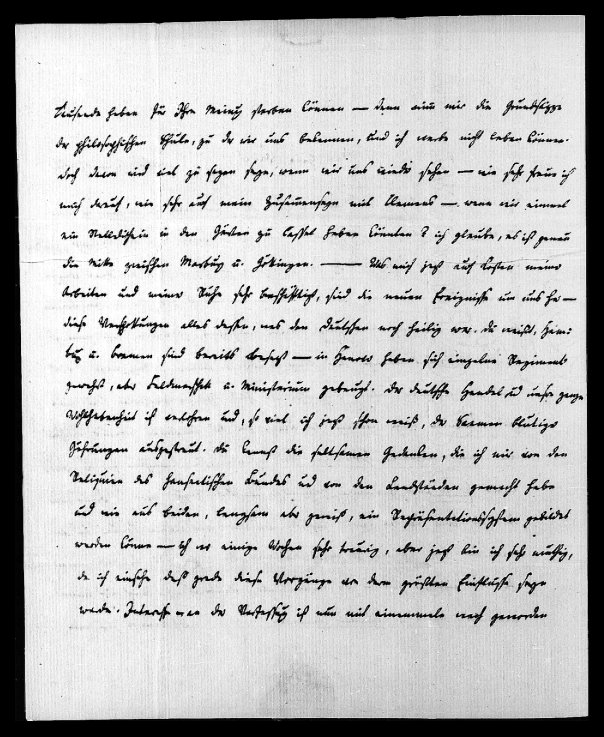 Tausende haben für Ihre Meinung sterben können — denn nim mir die Grundsäze
der philosophischen Schule, zu der wir uns bekennen, und ich werde nicht leben können.
doch davon wird viel zu sagen seyn, wenn wir uns wieder sehen — wie sehr freue ich
mich darauf, wie sehr auf mein Zusammenseyn mit Clemens — wenn wir einmal
ein Stelldichein in den Gärten zu Cassel haben könnten? ich glaube, es ist genau
die Mitte zwischen Marburg u. Göttingen. — Was mich jezt auf Kosten meiner
Arbeiten und meiner Ruhe sehr beschäftigt, sind die neuen Ereignisse um uns her —
diese Verhöhnungen alles dessen, was den Deutschen noch heilig war. du weißt, Ham-
burg u. Bremen sind bereits besezt — in Hanover haben sich einzelne Regimenter
gewehrt, aber Feldmarschall u. Ministerium gebeugt. der deutsche Handel und unsre ganze
Wohlhabenheit ist verlohren und, so viel ich jezt schon weiß, der Saamen blutiger
Gährungen ausgestreut. du kennst die seltsamen Gedanken, die ich mir von den
Reliquien des hanseatischen Bundes und von den Landständen gemacht habe
und wie aus beiden, langsam aber gewiß, ein Repräsentationssystem gebildet
werden könne — Ich war einige Wochen sehr traurig, aber jezt bin ich sehr muthig,
da ich einsehe daß grade diese Vorgänge von dem größten Einflusse seyn
werden. Interesse an der Verfassung ist nun mit einemmale rege geworden